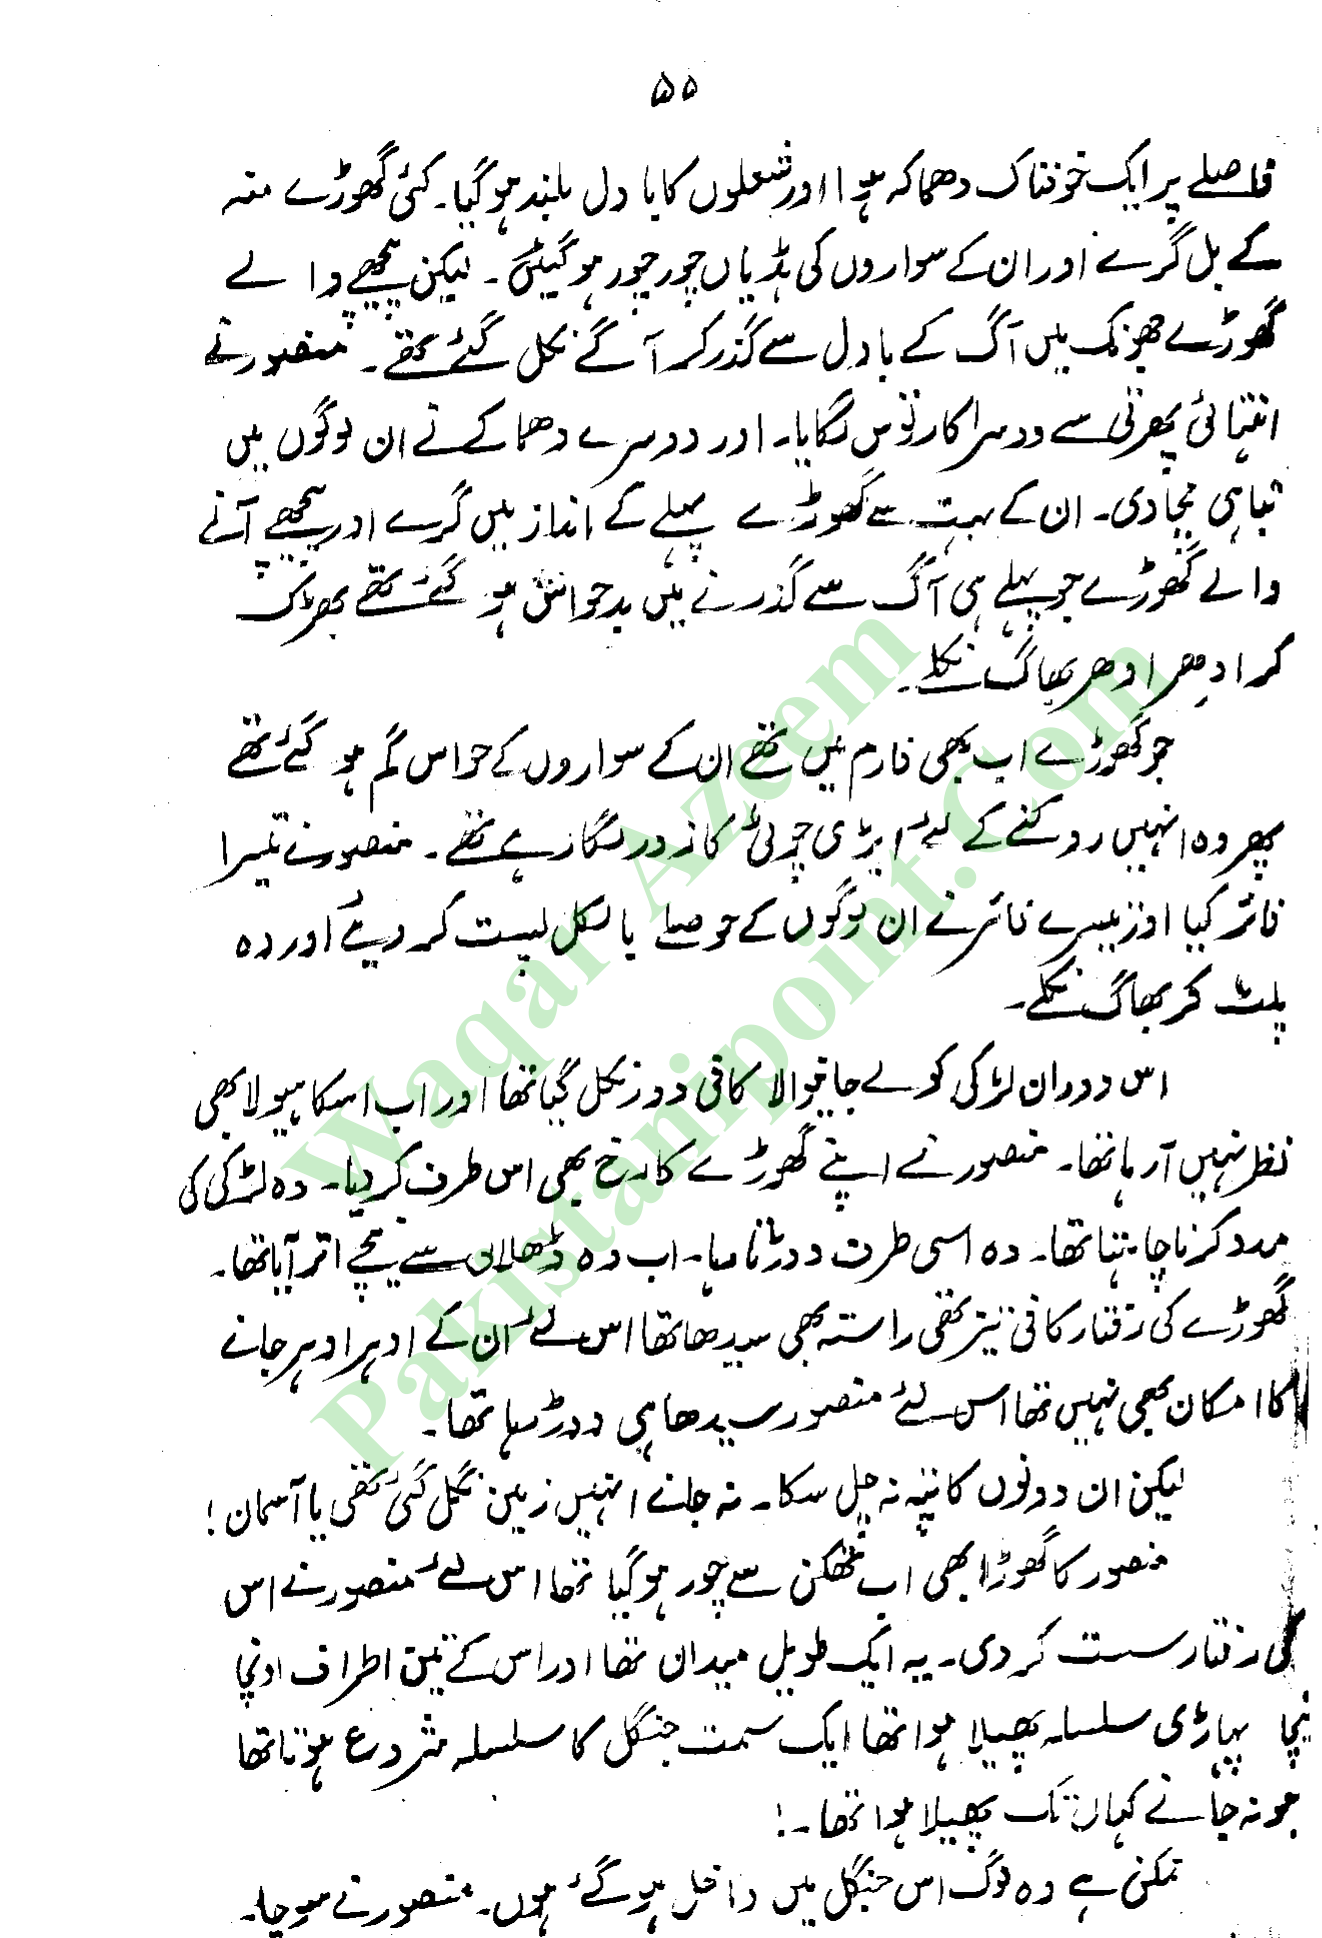 ۵۵
فاصلے پر ایک خوفناک دھماکہ ہوا اور شعلوں کا بادل بلند ہو گیا۔ کئی گھوڑے منہ
کے بل گرے اور ان کے سواروں کی ہڈیاں چور چور ہو گئیں۔ لیکن پیچھے والے
گھوڑے جھونک میں آگ کے بادل سے گذر کر آگے نکل گئے تھے۔ منصور نے
انتہائی پھرتی سے دوسرا کارتوس لگایا۔ اور دوسرے دھماکے نے ان لوگوں میں
تباہی مچا دی۔ ان کے بہت سے گھوڑے پہلے کے انداز میں گرے اور پیچھے آنے
والے گھوڑے جو پہلے ہی آگ سے گذرنے میں بدحواس ہو گئے تھے بھڑک
کر ادھر ادھر بھاگ نکلے۔
جو گھوڑے اب بھی فارم میں تھے ان کے سواروں کے حواس گم ہو گئے تھے
پھر وہ انہیں روکنے کے لئے ایڑی چوٹی کا زور لگا رہے تھے۔ منصور نے تیسرا
فائر کیا اور تیسرے فائر نے ان لوگوں کے حوصلے بالکل پست کر دیئے اور وہ
پلٹ کر بھاگ نکلے۔
اس دوران لڑکی کو لے جانیوالا کافی دور نکل گیا تھا اور اب اسکا ہیولا بھی
نظر نہیں آ رہا تھا۔ منصور نے اپنے گھوڑے کا رخ بھی اس طرف کر دیا۔ وہ لڑکی کی
مدد کرنا چاہتا تھا۔ وہ اسی طرف دوڑتا رہا۔ اب وہ ڈھلان سے نیچے اتر آیا تھا۔
گھوڑے کی رفتار کافی تیز تھی راستہ بھی سیدھا تھا اس لئے ان کے ادہر ادہر جانے
کا امکان بھی نہیں تھا اس لئے منصور سیدھا ہی دوڑ رہا تھا۔
لیکن ان دونوں کا پتہ نہ چل سکا۔ نہ جانے انہیں زمین نگل گئی تھی یا آسمان!
منصور کا گھوڑا بھی اب تھکن سے چور ہو گیا تھا اس لئے منصور نے اس
کی رفتار سست کر دی۔ یہ ایک طویل میدان تھا اور اس کے تین اطراف اونچا
نیچا پہاڑی سلسلہ پھیلا ہوا تھا ایک سمت جنگل کا سلسلہ شروع ہوتا تھا
جو نہ جانے کہاں تک پھیلا ہوا تھا۔!
ممکن ہے وہ لوگ اس جنگل میں داخل ہو گئے ہوں۔ منصور نے سوچا۔
Waqar Azeem
Pakistanipoint.Com